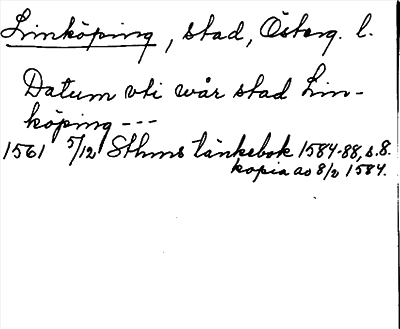 Linköping, stad, Österg. l.
Datum vti wår stad Lin-
köping ---
1561 5/12 Sthms tänkebok 1584-88, s. 8.
kopia ao 8/2 1584.